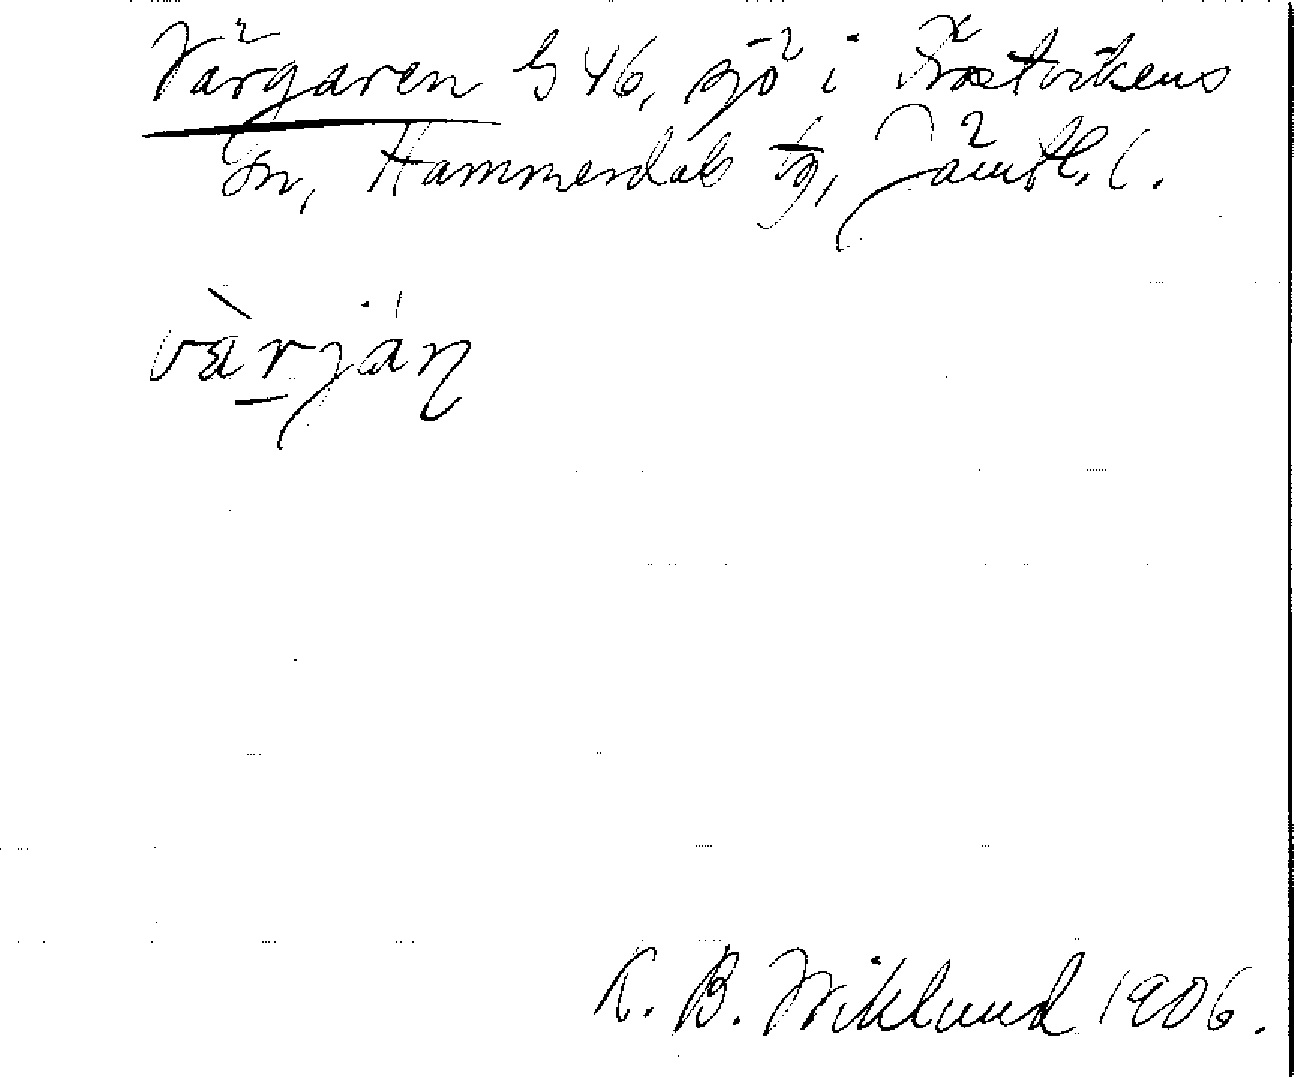 Värgaren G 46, sjö i Tråsvikens
sn, Hammerdals tg, Jämtl. l.
vàrján
K. B. Wiklund 1906.